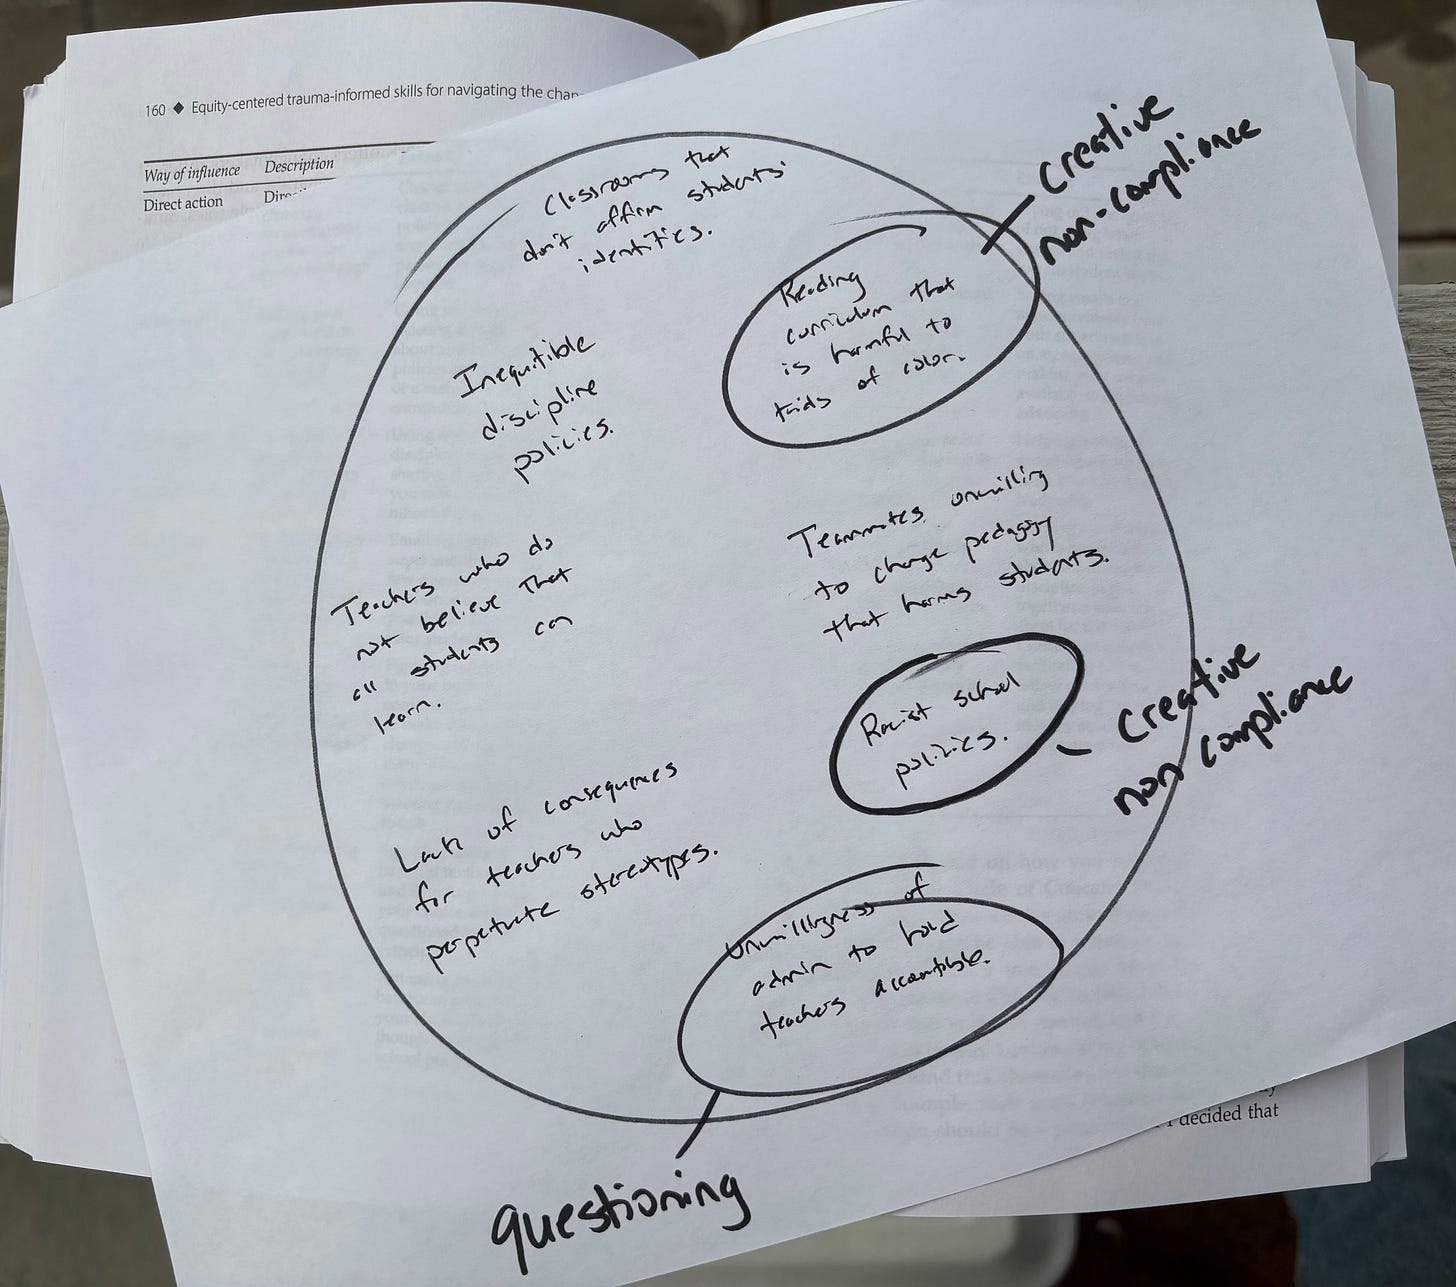 160 ◆ Equity-centered trauma-informed skills for navigating the chan
Way of influence Description
Direct action
Classrooms that
don't affirm students'
identities.
Creative
non-compliance
Reading
curriculum that
is harmful to
kids of color.
Inequitible
discipline
policies.
Teammates unwilling
to change pedagogy
that harms students.
Teachers who do
not believe that
all students can
learn.
Racist school
policies.
Creative
non compliance
Lack of consequences
for teachers who
perpetuate stereotypes.
Unwillingness of
admin to hold
teachers accountible.
questioning
decided that